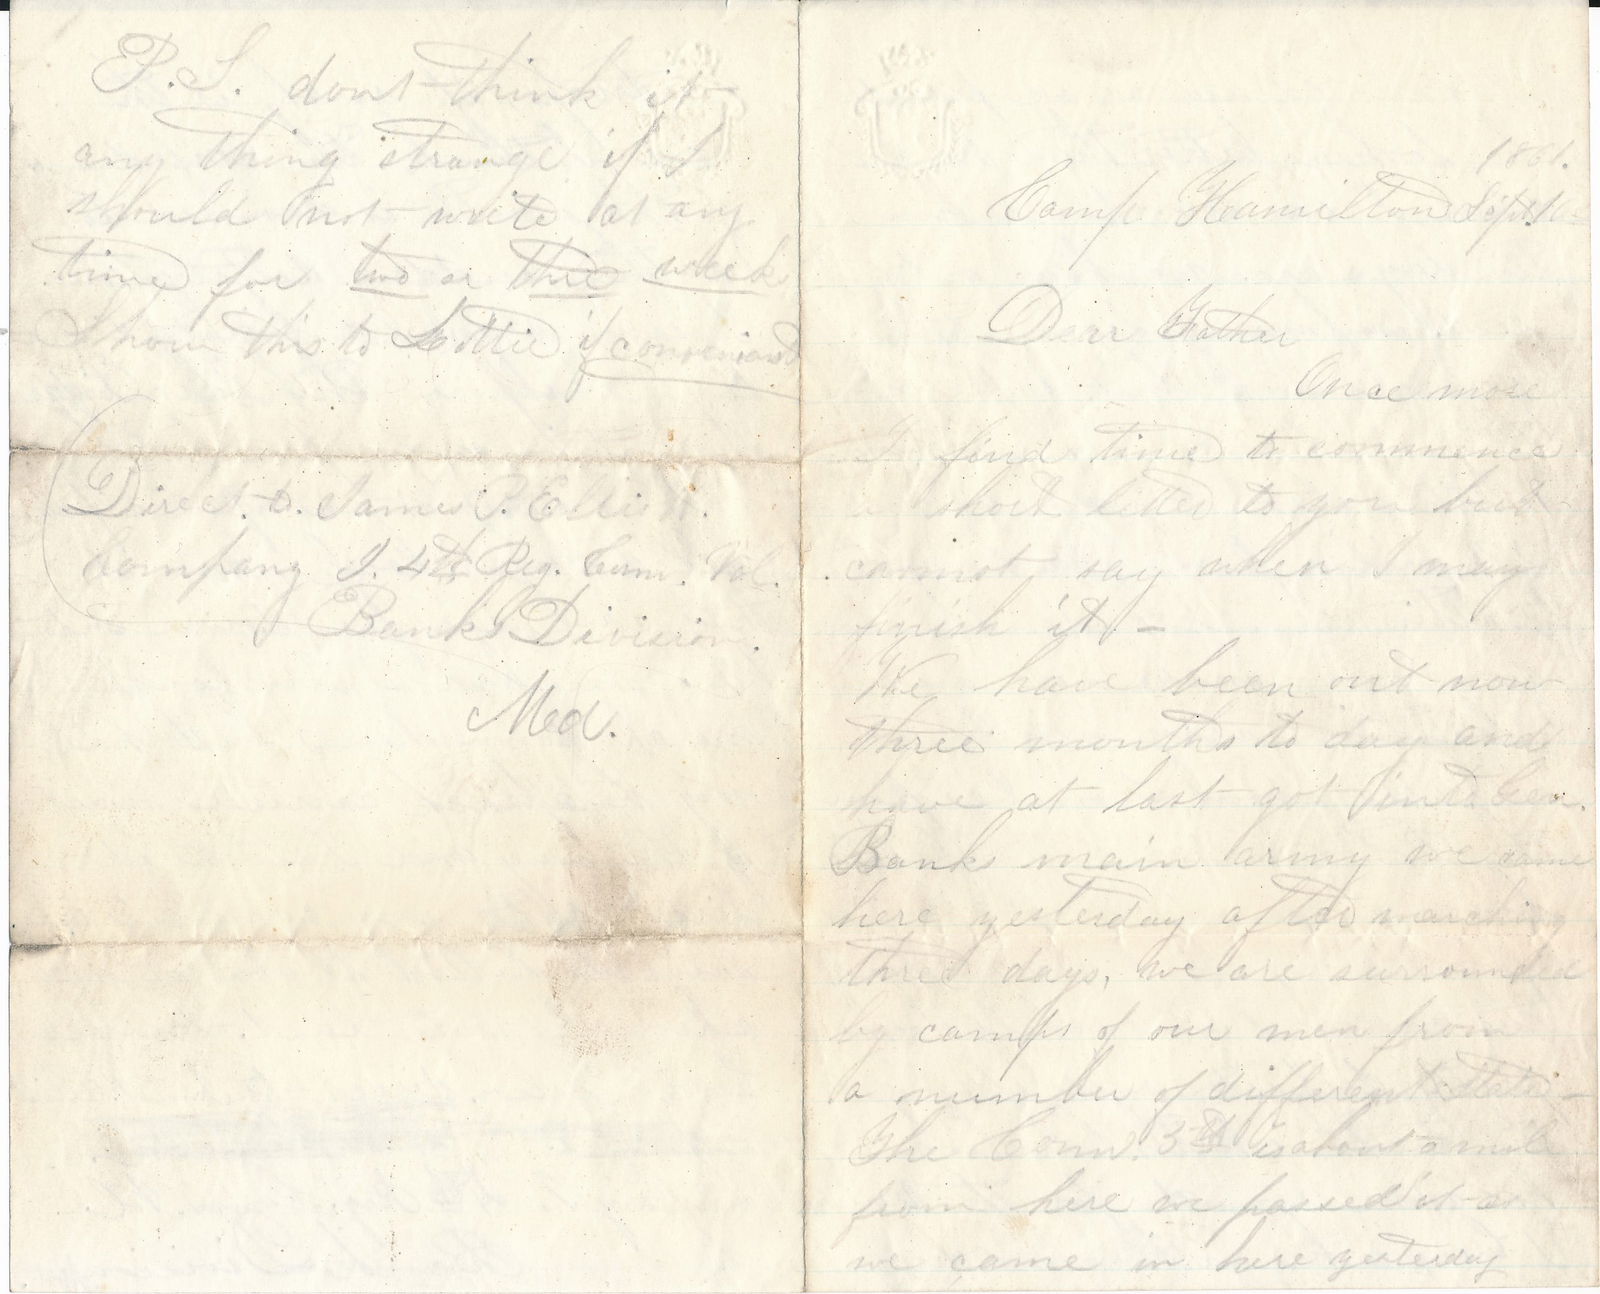 P.S. dont think it
any thing strange if I
should not write at any
time for two or three week
Show this to Lottie if convenient
Direct. to. James P. Elliott.
Company I. 4th Reg. Conn. Vol.
Banks Division.
Md.
1861.
Camp Hamilton Sept. 10
Dear Father
Once more
I find time to commence
a short letter to you but
cannot say when I may
finish it -
We have been out now
three months to day and
have at last got into Gen.
Banks main army we came
here yesterday after marching
three days, we are surrounded
by camps of our men from
a number of different States -
The Conn. 5th is about a mile
from here we passed it as
we came in here yesterday